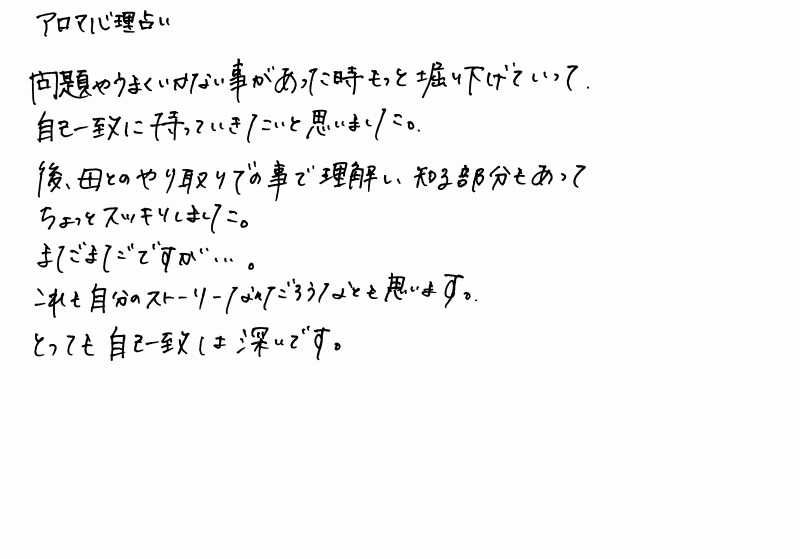 アロマ心理占い
問題やうまくいかない事があった時もっと堀り下げていって.
自己一致に持っていきたいと思いました。
後、母とのやり取りでの事で理解し、知る部分もあって
ちょっとスッキリしました。
まだまだですが…。
これも自分のストーリーなんだろうなとも思います。
とっても自己一致は深いです。